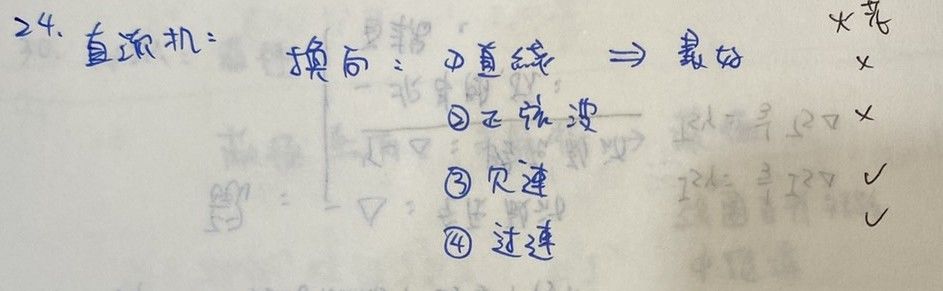 24. 直流机: 换向: ①直线 ⇒ 最好 火花
×
②正弦波 ×
③欠速 ✓
④过速 ✓